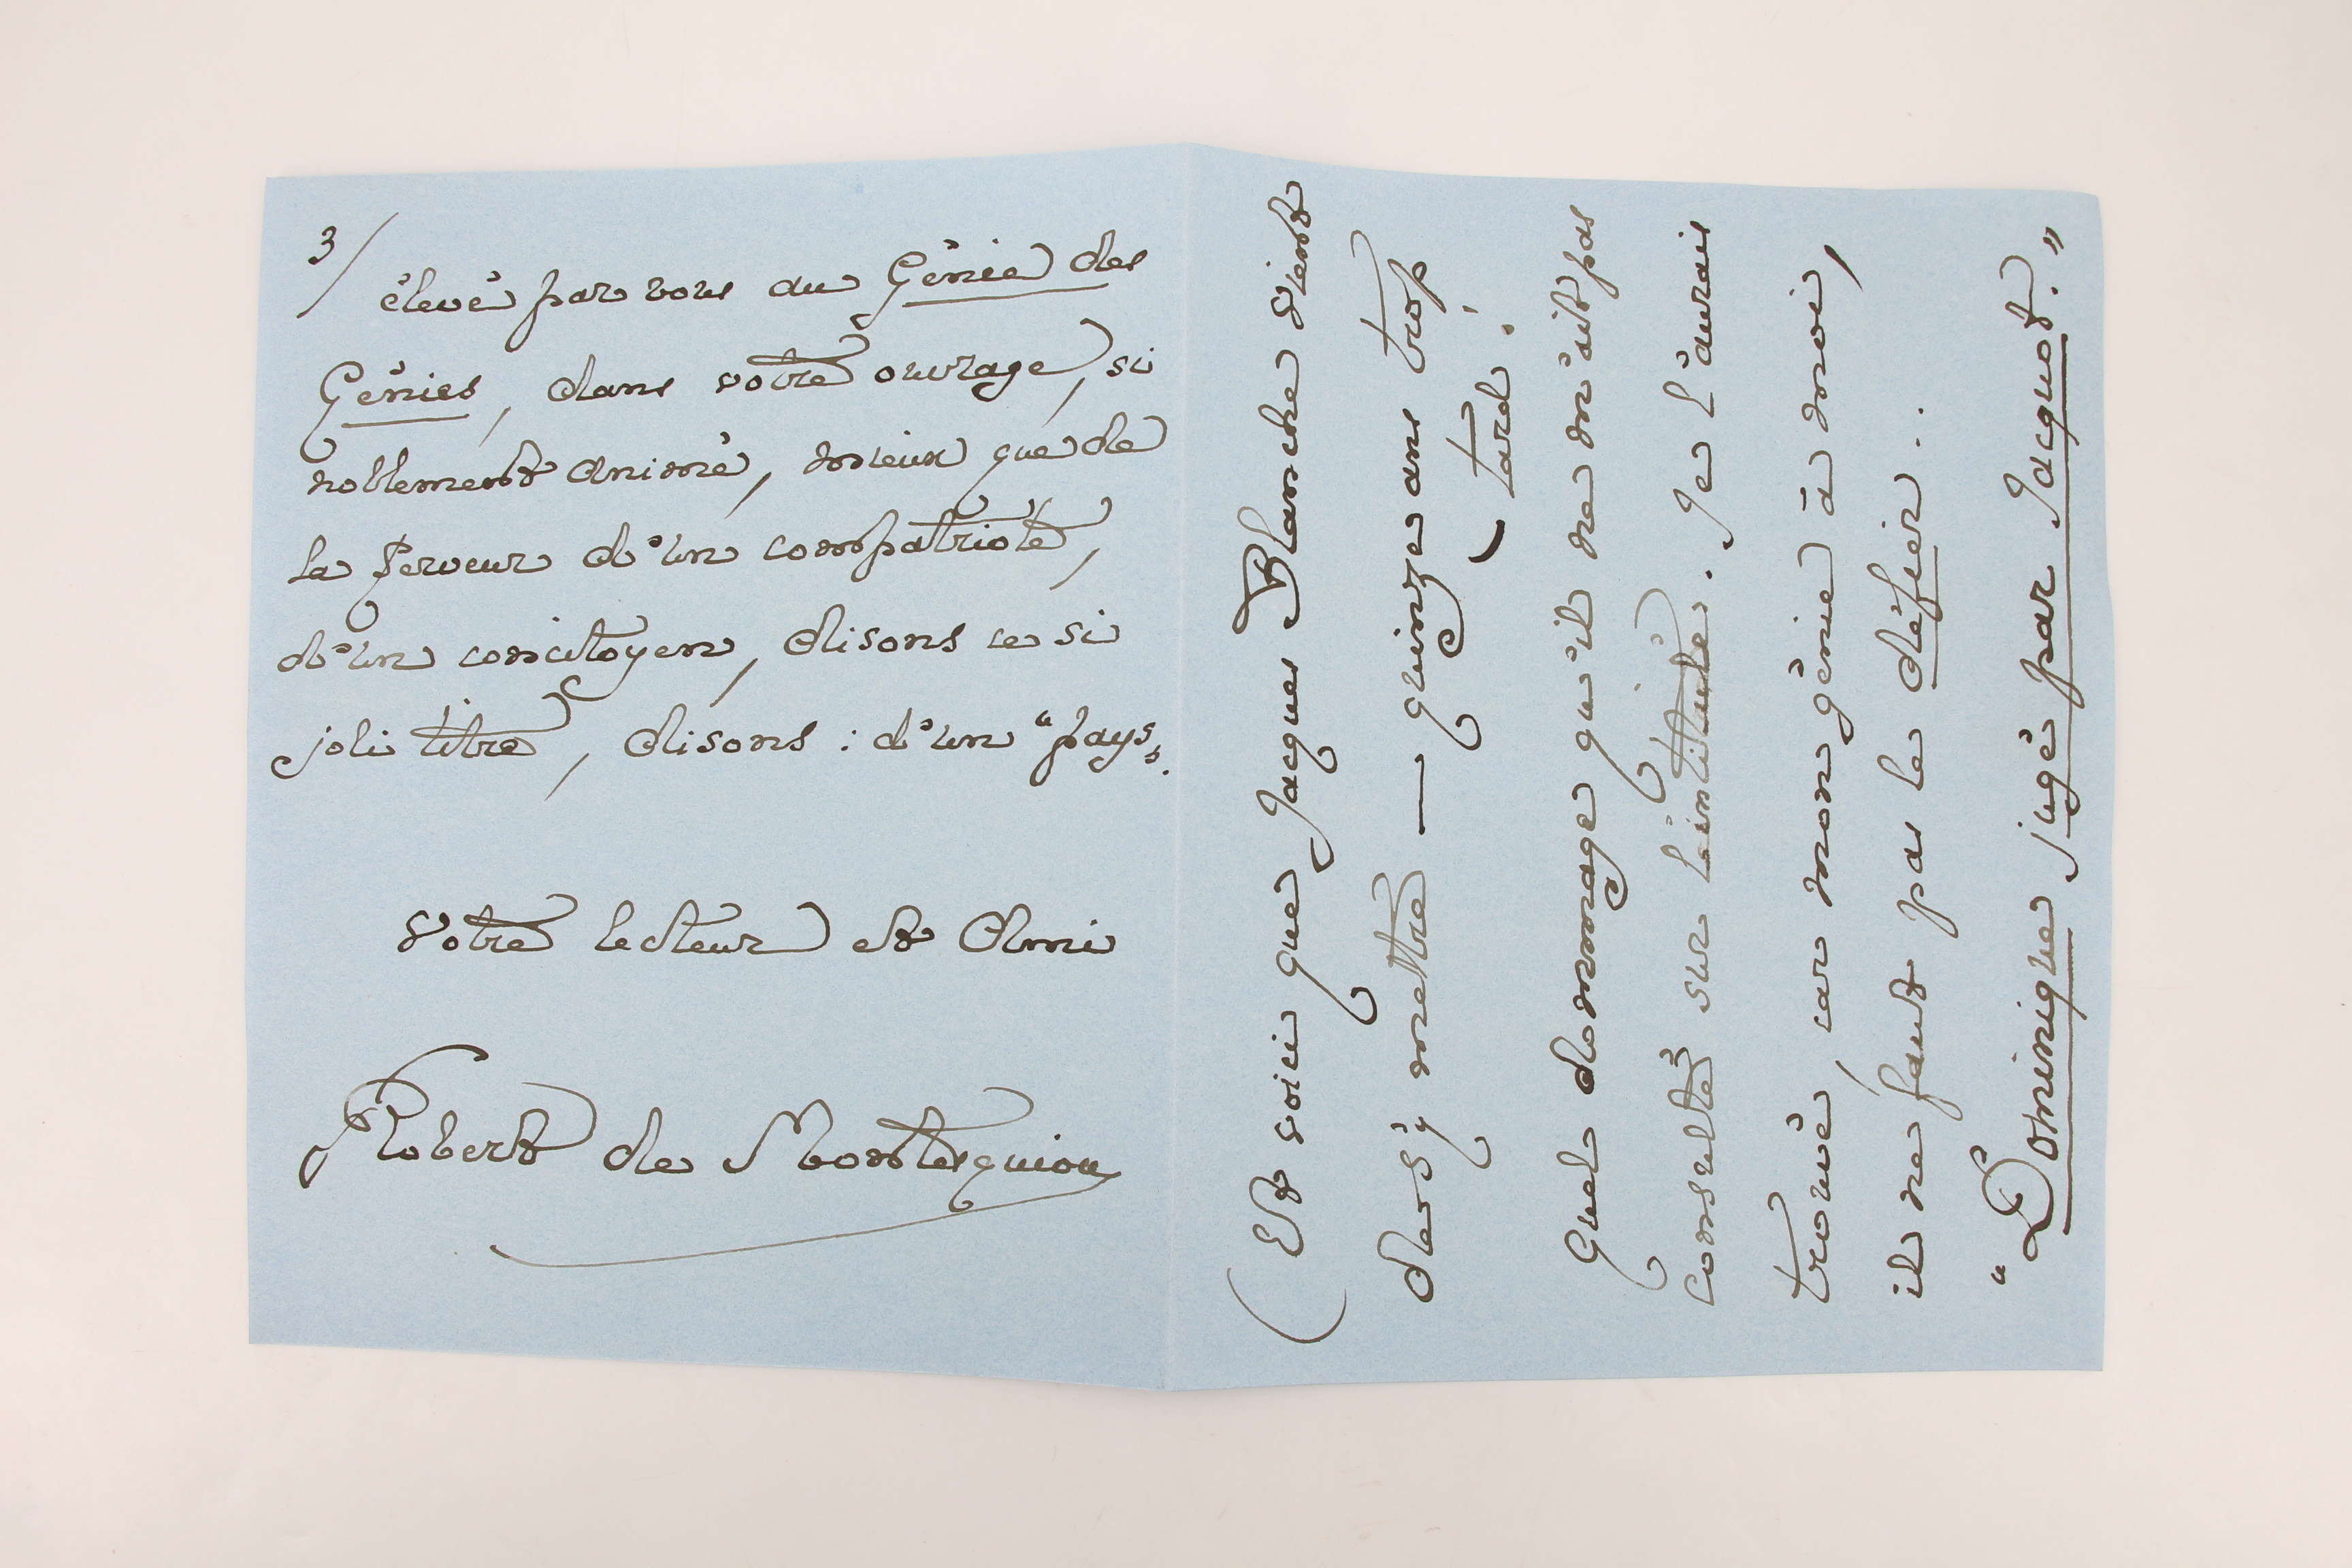 3/
élevé par vous au Génie des
Génies, dans votre ouvrage, si
noblement animé, mieux que de
la ferveur d'un compatriote,
d'un concitoyen, disons ce si
joli titre, disons : d'un "pays".
Votre lecteur et Ami
Robert de Montesquiou
(Et voici que Jacques Blanche vient
de s'y mettre — quinze ans trop
tard !
Quel dommage qu'il ne m'ait pas
consulté sur l'intitulé. Je l'aurais
trouvé, car mon génie à moi,
il ne faut pas le défier...
"Dominique jugé par Jacquot."